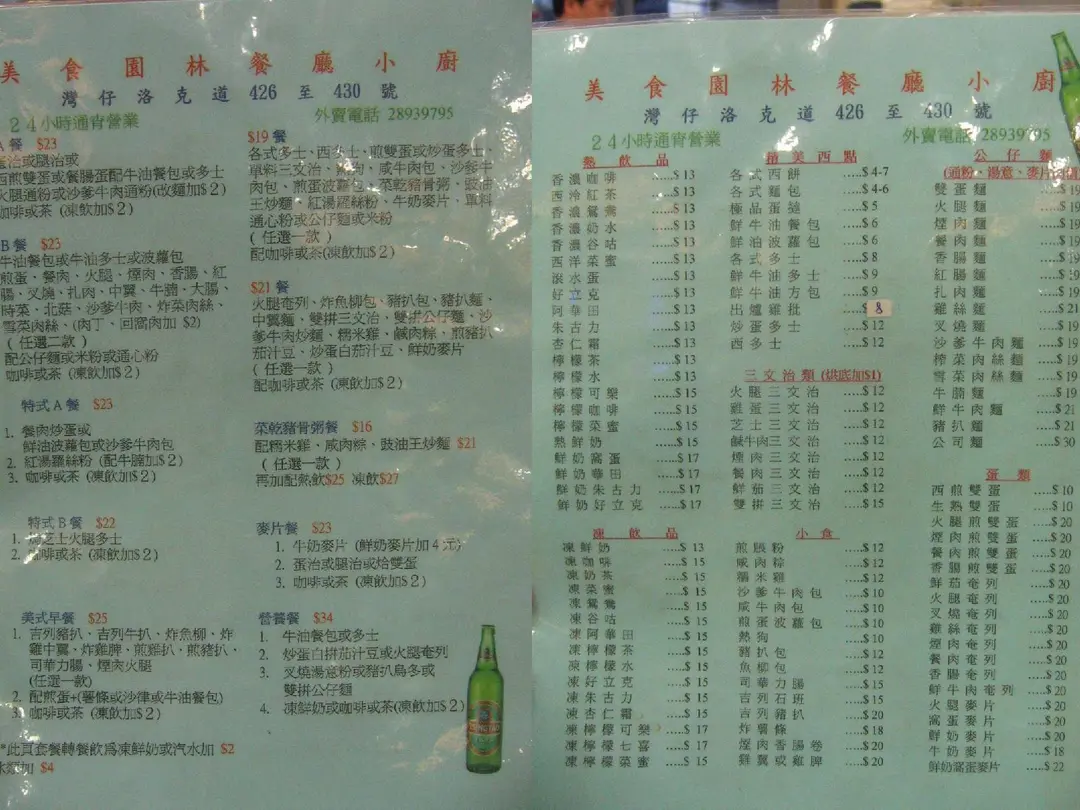 美食園林餐廳小廚
灣仔洛克道 426 至 430 號
24小時通宵營業
外賣電話 28939795
A餐 $23
蛋治或腿治或
西煎雙蛋或餐腸蛋配牛油餐包或多士
火腿通粉或沙爹牛肉通粉(改麵加$2)
咖啡或茶 (凍飲加$2)
B餐 $23
牛油餐包或牛油多士或波蘿包
煎蛋、餐肉、火腿、煙肉、香腸、紅
腸、叉燒、扎肉、中翼、牛腩、大腸、
時菜、北菇、沙爹牛肉、炸菜肉絲、
雪菜肉絲、(肉丁、回窩肉加 $2)
( 任選二款 )
配公仔麵或米粉或通心粉
咖啡或茶 (凍飲加$2)
特式A餐 $23
1. 餐肉炒蛋或
鮮油波蘿包或沙爹牛肉包
2. 紅湯羅絲粉 (配牛腩加$2)
3. 咖啡或茶 (凍飲加$2)
特式B餐 $22
1. 芝士火腿多士
2. 咖啡或茶 (凍飲加$2)
美式早餐 $25
1. 吉列豬扒、吉列牛扒、炸魚柳、炸
雞中翼、炸雞脾、煎雞扒、煎豬扒、
司華力腸、煙肉火腿
(任選一款)
2. 配煎蛋+(薯條或沙律或牛油餐包)
3. 咖啡或茶 (凍飲加$2)
*此頁套餐轉餐飲爲凍鮮奶或汽水加 $2
冰類加 $4
$19 餐
各式多士、西多士、煎雙蛋或炒蛋多士、
單料三文治、熱狗、咸牛肉包、沙爹牛
肉包、煎蛋波蘿包、菜乾豬骨粥、豉油
王炒麵、紅湯羅絲粉、牛奶麥片、單料
通心粉或公仔麵或米粉
( 任選一款 )
配咖啡或茶(凍飲加$2)
$21 餐
火腿奄列、炸魚柳包、豬扒包、豬扒麵、
中翼麵、雙拼三文治、雙拼公仔麵、沙
爹牛肉炒麵、糯米雞、鹹肉粽、煎豬扒
茄汁豆、炒蛋白茄汁豆、鮮奶麥片
( 任選一款 )
配咖啡或茶 (凍飲加$2)
菜乾豬骨粥餐 $16
配糯米雞、咸肉粽、豉油王炒麵 $21
( 任選一款 )
再加配熱飲$25 凍飲$27
麥片餐 $23
1. 牛奶麥片 (鮮奶麥片加4元)
2. 蛋治或腿治或烚雙蛋
3. 咖啡或茶 (凍飲加$2)
營養餐 $34
1. 牛油餐包或多士
2. 炒蛋白拼茄汁豆或火腿奄列
3. 叉燒湯意粉或豬扒烏多或
雙拼公仔麵
4. 凍鮮奶或咖啡或茶(凍飲加$2)
美食園林餐廳小廚
灣仔洛克道 426 至 430 號
24小時通宵營業
外賣電話 28939795
熱飲品
香濃咖啡 ......$13
西冷紅茶 ......$13
香濃鴛鴦 ......$13
香濃奶水 ......$13
香濃谷咕 ......$13
西洋菜蜜 ......$13
滾水蛋 ......$13
好立克 ......$13
阿華田 ......$13
朱古力 ......$13
杏仁霜 ......$13
檸檬茶 ......$13
檸檬水 ......$13
檸檬可樂 ......$15
檸檬咖啡 ......$15
檸檬菜蜜 ......$15
熱鮮奶 ......$15
鮮奶窩蛋 ......$17
鮮奶華田 ......$17
鮮奶朱古力 ......$17
鮮奶好立克 ......$17
凍飲品
凍鮮奶 .....$13
凍咖啡 .....$15
凍奶茶 .....$15
凍菜蜜 .....$15
凍鴛鴦 .....$15
凍谷咕 .....$15
凍阿華田 .....$15
凍檸檬茶 .....$15
凍檸檬水 .....$15
凍好立克 .....$15
凍朱古力 .....$15
凍杏仁霜 .....$15
凍檸檬可樂 .....$17
凍檸檬七喜 .....$17
凍檸檬菜蜜 .....$15
精美西點
各式西餅 .....$4-7
各式麵包 .....$4-6
極品蛋撻 .....$5
鮮牛油餐包 .....$6
鮮油波蘿包 .....$6
各式多士 .....$8
鮮牛油多士 .....$9
鮮牛油方包 .....$9
出爐雞批 .....$8
炒蛋多士 .....$12
西多士 .....$12
三文治類 (烘底加$1)
火腿三文治 .....$12
雞蛋三文治 .....$12
芝士三文治 .....$12
鹹牛肉三文治 .....$12
煙肉三文治 .....$12
餐肉三文治 .....$12
鮮茄三文治 .....$12
雙拼三文治 .....$15
小食
煎腸粉 .....$12
咸肉粽 .....$12
糯米雞 .....$12
沙爹牛肉包 .....$10
咸牛肉包 .....$10
煎蛋波蘿包 .....$10
熱狗 .....$10
豬扒包 .....$12
魚柳包 .....$12
司華力腸 .....$15
吉列石班 .....$15
吉列豬扒 .....$20
炸薯條 .....$18
煙肉香腸卷 .....$20
雞翼或雞脾 .....$20
公仔麵
(通粉、湯意、麥片
雙蛋麵 .....$19
火腿麵 .....$19
煙肉麵 .....$19
餐肉麵 .....$19
香腸麵 .....$19
紅腸麵 .....$19
扎肉麵 .....$19
雞絲麵 .....$21
叉燒麵 .....$19
沙爹牛肉麵 .....$19
榨菜肉絲麵 .....$19
雪菜肉絲麵 .....$19
牛腩麵 .....$19
鮮牛肉麵 .....$21
豬扒麵 .....$21
公司麵 .....$30
蛋類
西煎雙蛋 ....$10
生熟雙蛋 ....$10
火腿煎雙蛋 ....$20
煙肉煎雙蛋 ....$20
餐肉煎雙蛋 ....$20
香腸煎雙蛋 ....$20
鮮茄奄列 ....$20
火腿奄列 ....$20
叉燒奄列 ....$20
雞絲奄列 ....$20
煙肉奄列 ....$20
餐肉奄列 ....$20
香腸奄列 ....$20
鮮牛肉奄列 ....$20
火腿麥片 ....$20
窩蛋麥片 ....$20
鮮奶麥片 ....$20
牛奶麥片 ....$18
鮮奶窩蛋麥片 ....$22